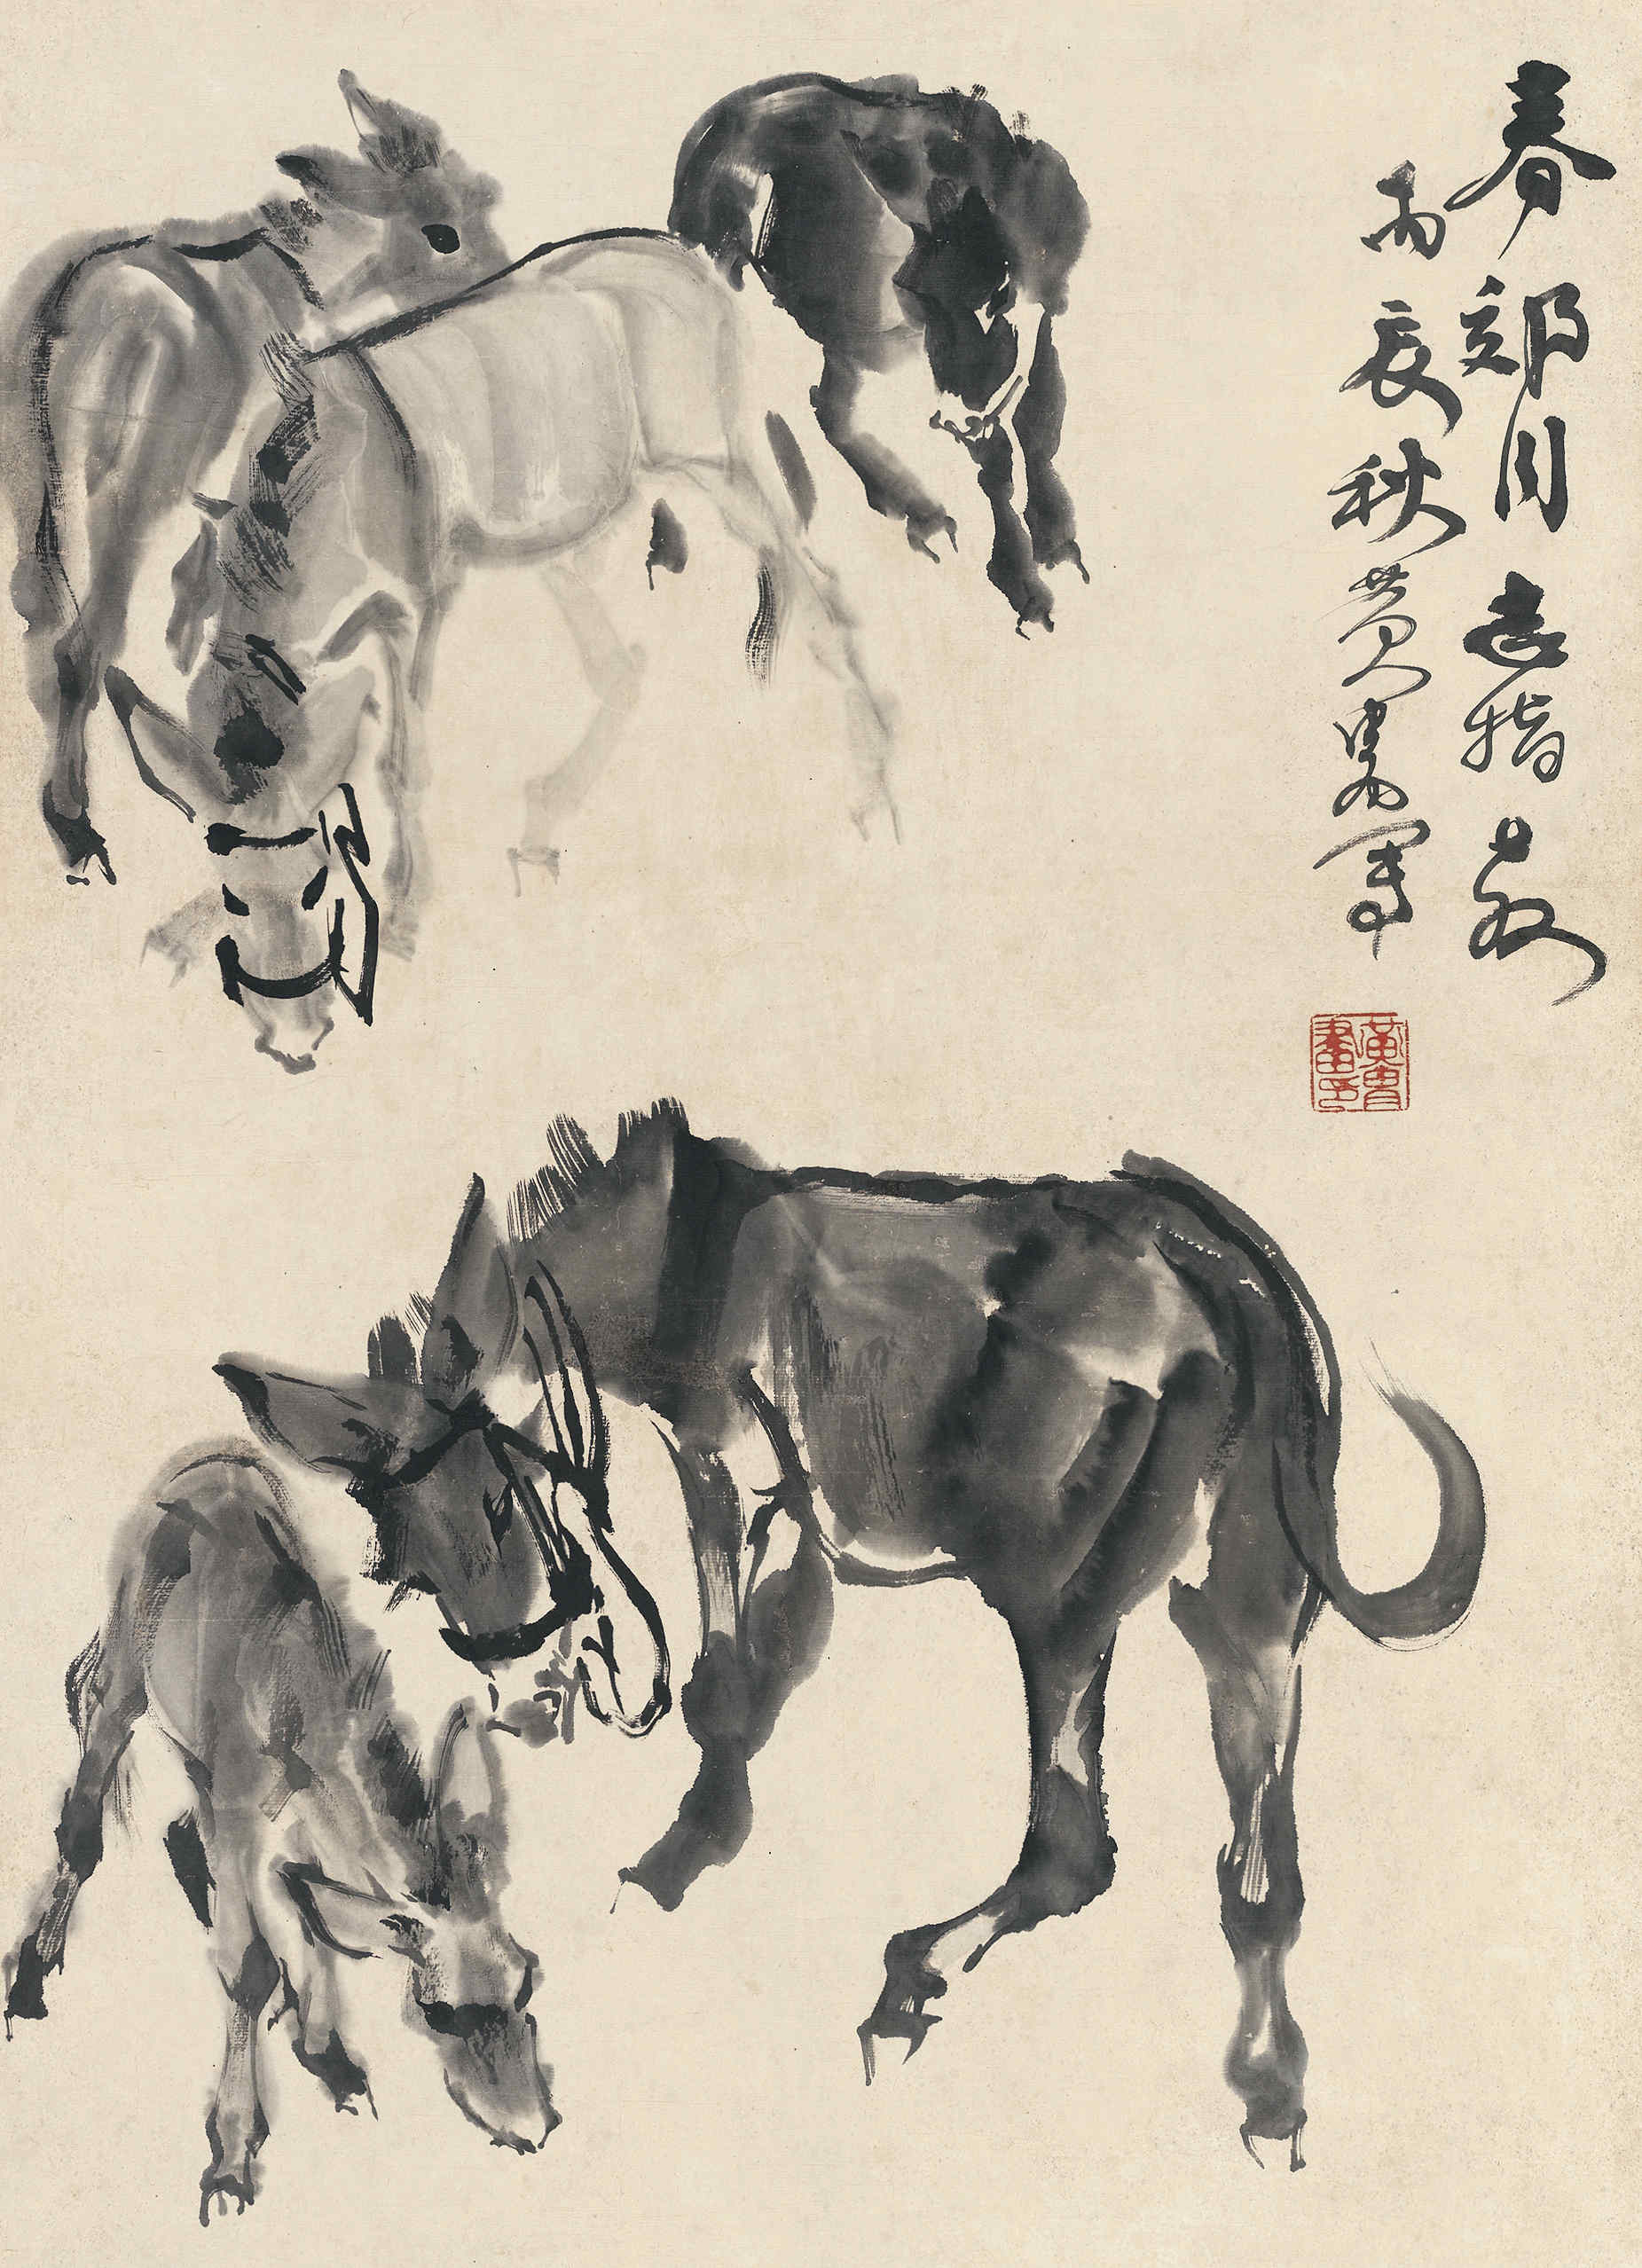 春郊同志指教
丙辰秋黄胄写
黃胄畫印